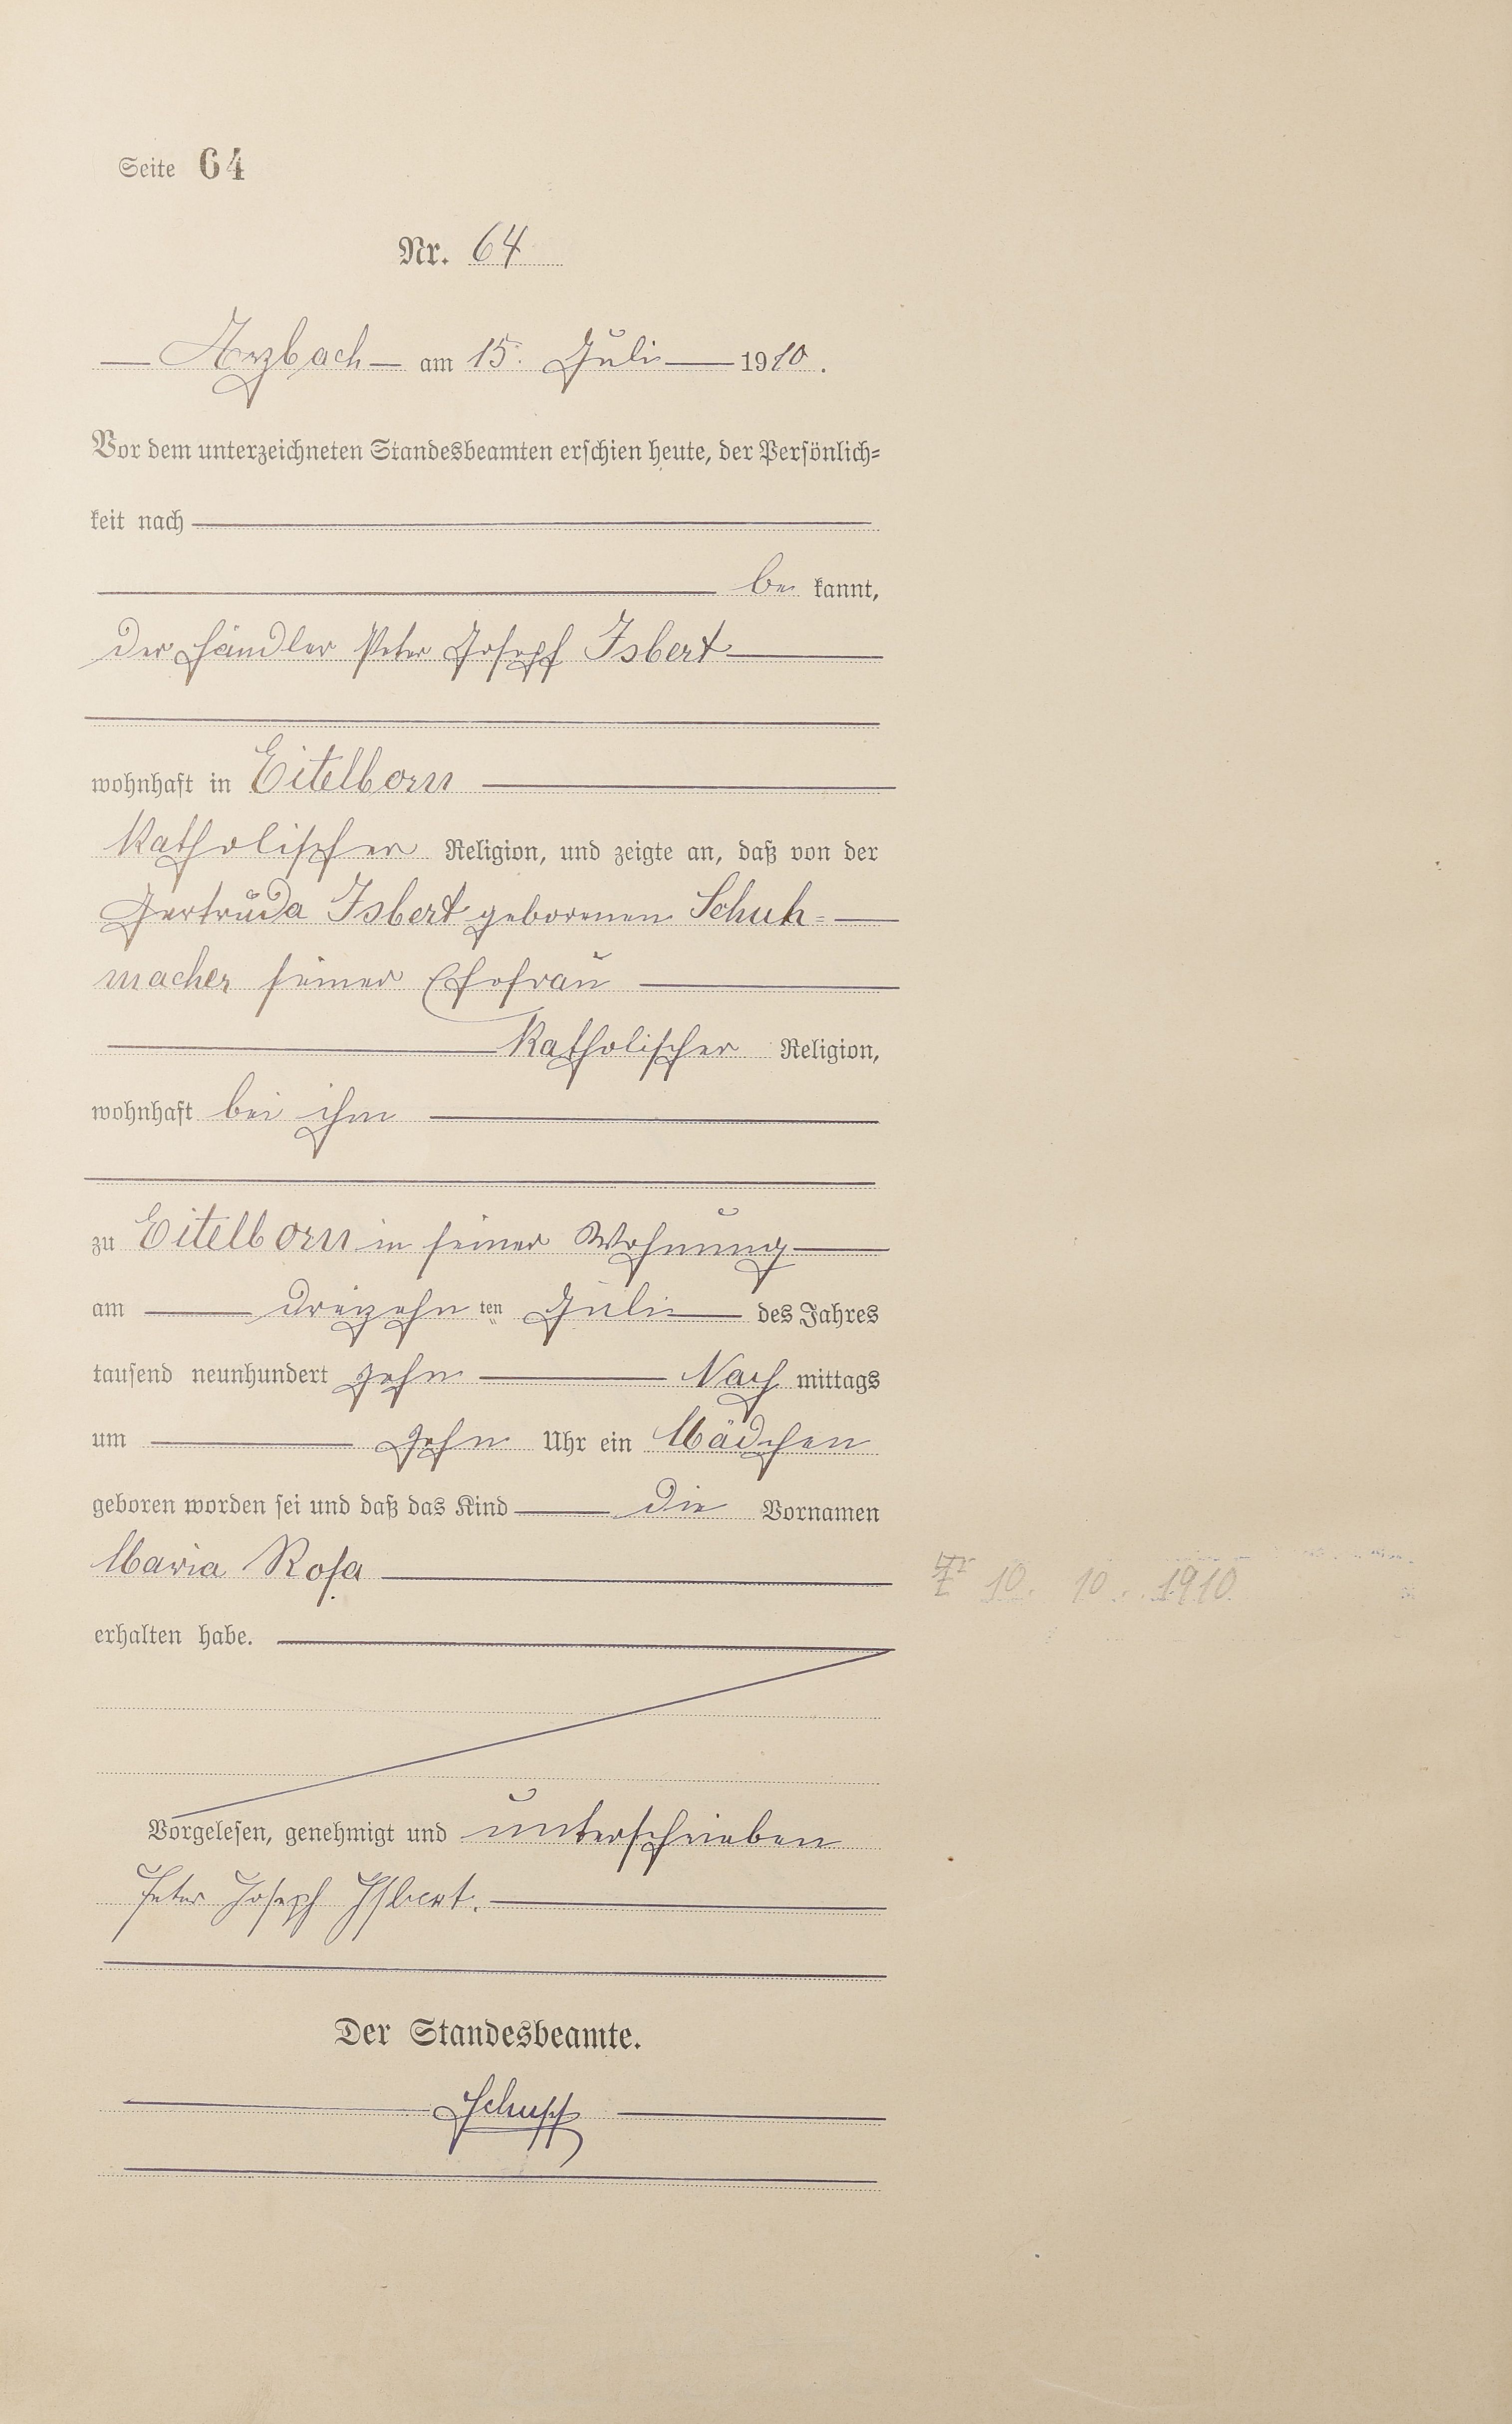 Seite 64
Nr. 64
Arzbach am 15. Juli 1910.
Vor dem unterzeichneten Standesbeamten erschien heute, der Persönlich-
keit nach
be kannt,
der Händler Peter Joseph Isbert
wohnhaft in Eitelborn
katholischer Religion, und zeigte an, daß von der
Gertruda Isbert geborenen Schuh-
macher seiner Ehefrau
katholischer Religion,
wohnhaft bei ihm
zu Eitelborn in seiner Wohnung
am dreizehn ten Juli des Jahres
tausend neunhundert zehn Nach mittags
um zehn Uhr ein Mädchen
geboren worden sei und daß das Kind die Vornamen
Maria Rosa
10. 10. 1910
erhalten habe.
Vorgelesen, genehmigt und unterschrieben
Peter Joseph Isbert.
Der Standesbeamte.
Schupp